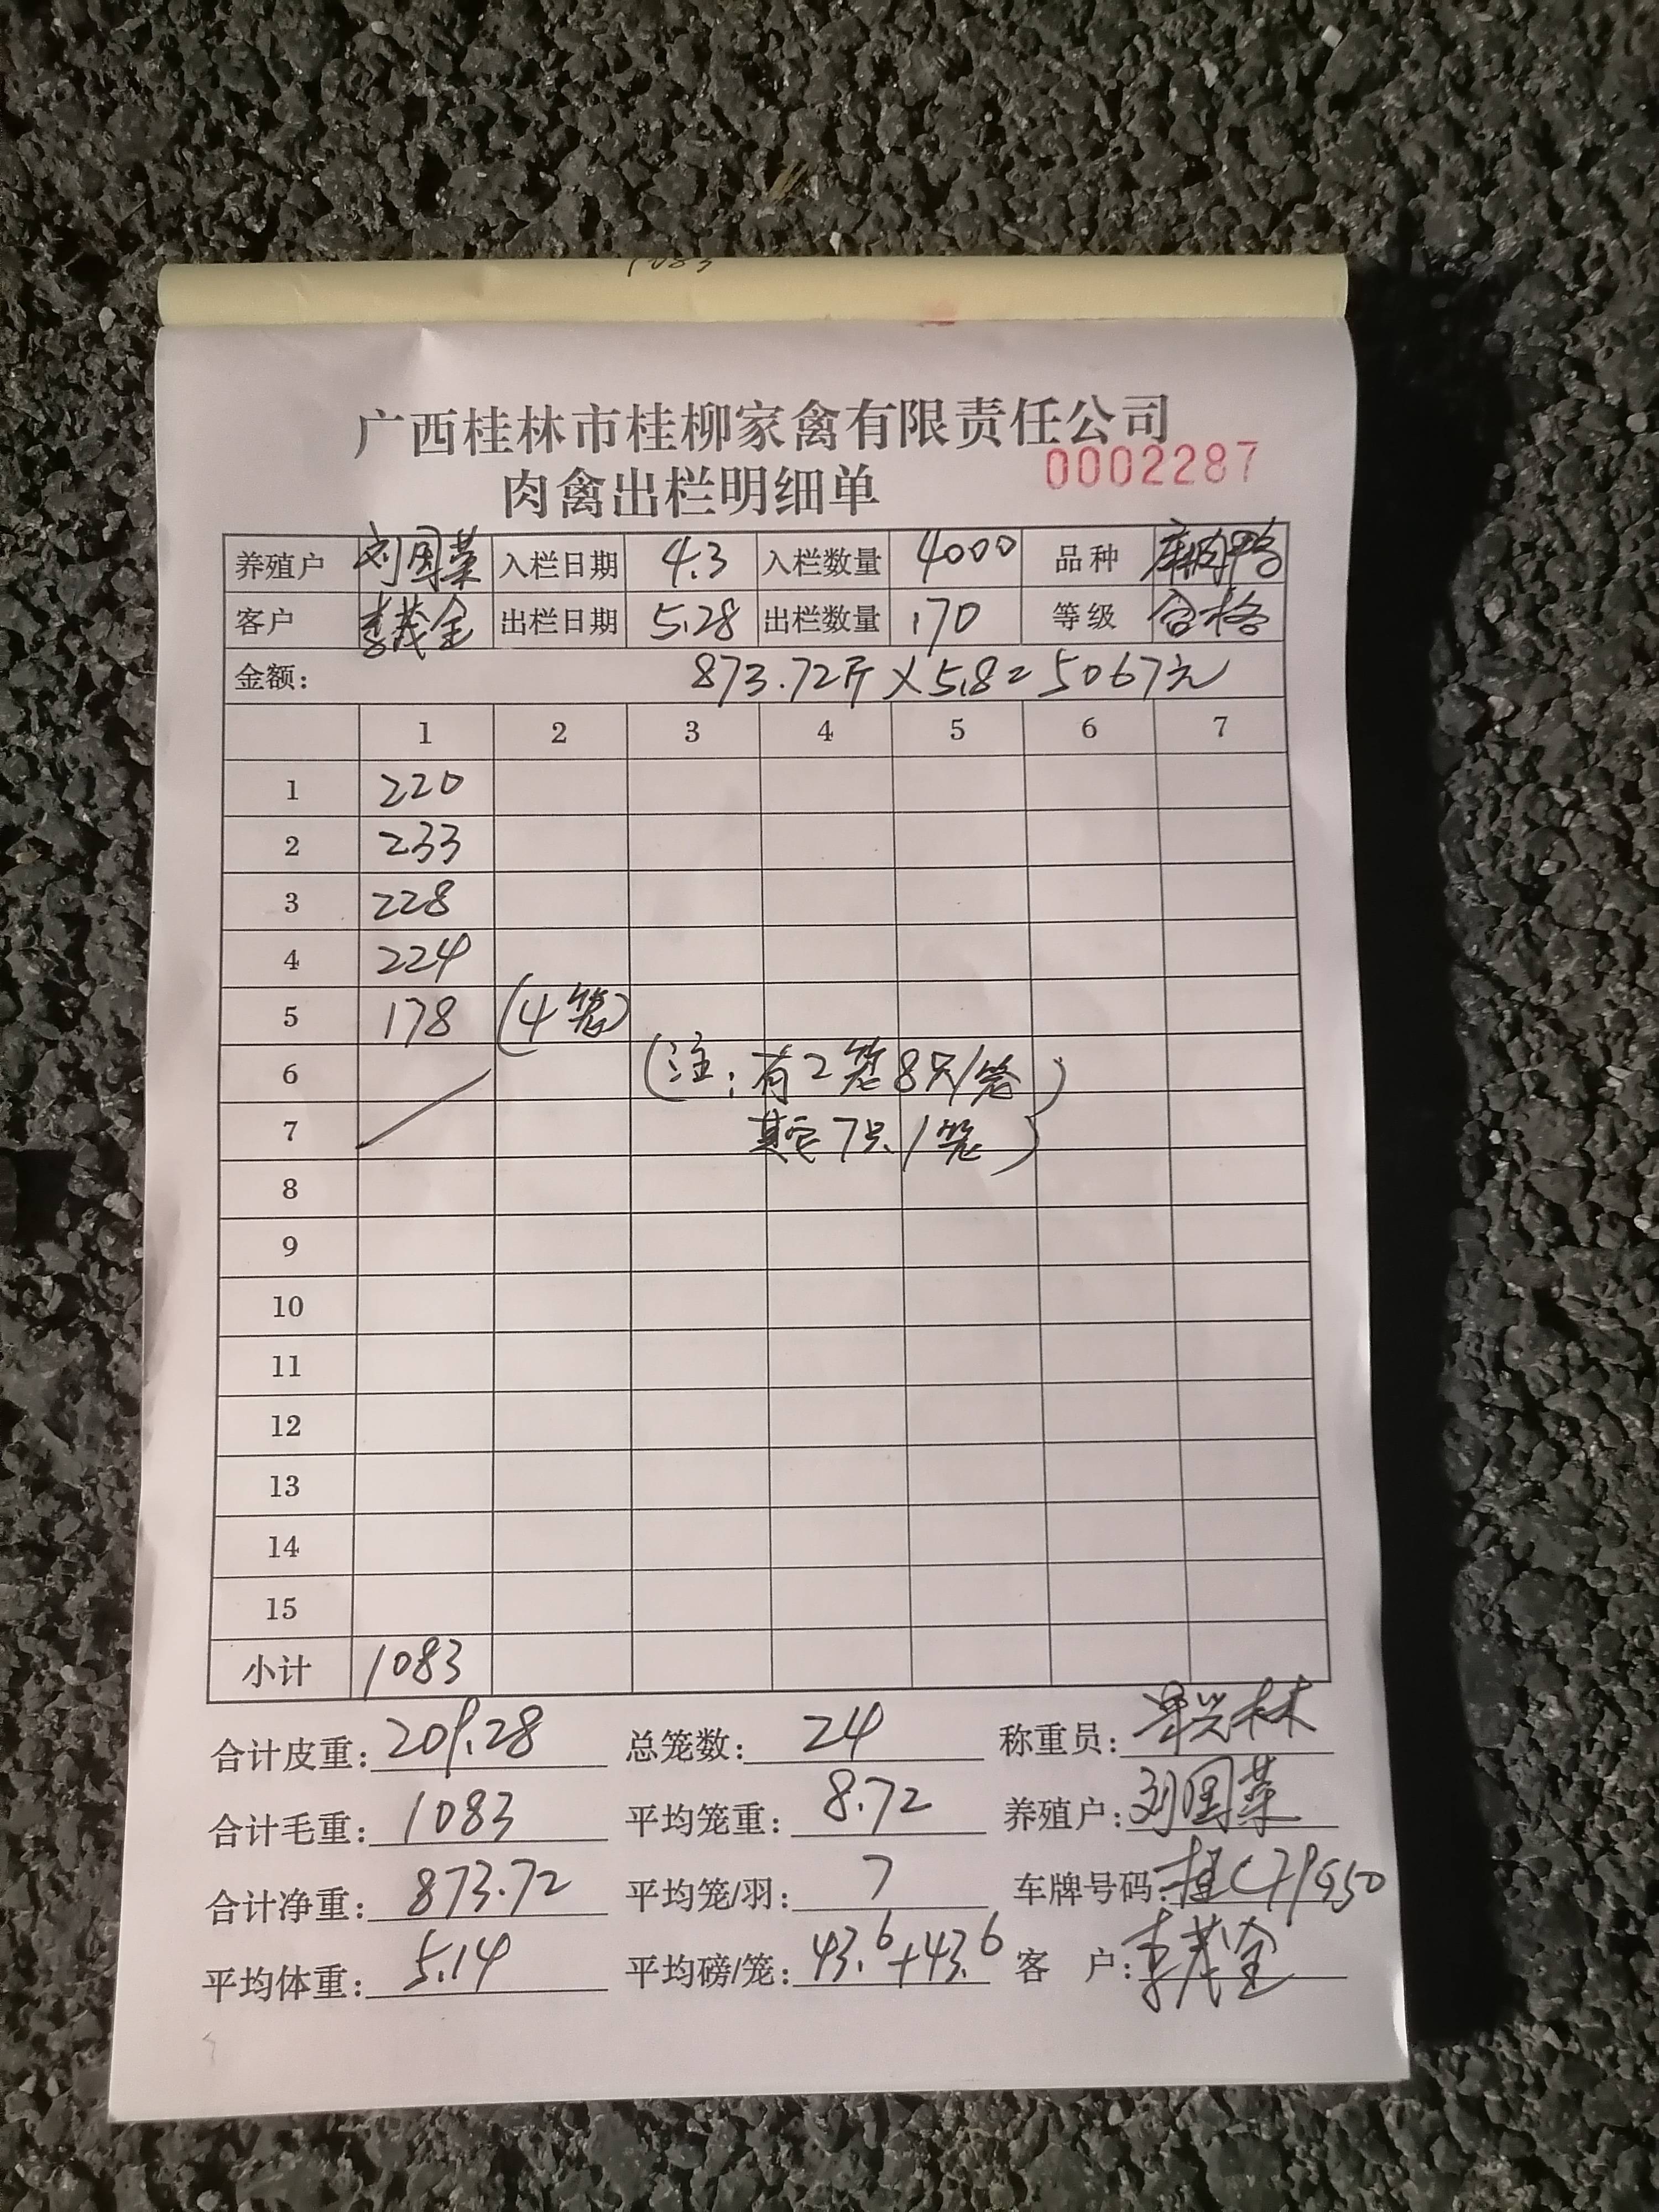 1083
广西桂林市桂柳家禽有限责任公司
肉禽出栏明细单
0002287
养殖户 刘国菜 入栏日期 4.3 入栏数量 4000 品种
客户 李茂金 出栏日期 5.28 出栏数量 170 等级 合格
金额: 873.72斤×5.8=5067元
1 2 3 4 5 6 7
1 220
2 233
3 228
4 224
5 178 (4笼)
6 (注:有2笼8只/笼)
7 其它7只/笼)
8
9
10
11
12
13
14
15
小计 1083
合计皮重: 209.28 总笼数: 24 称重员:
合计毛重: 1083 平均笼重: 8.72 养殖户: 刘国菜
合计净重: 873.72 平均笼/羽: 7 车牌号码:
平均体重: 5.14 平均磅/笼: 43.6+43.6 客 户: 李茂金